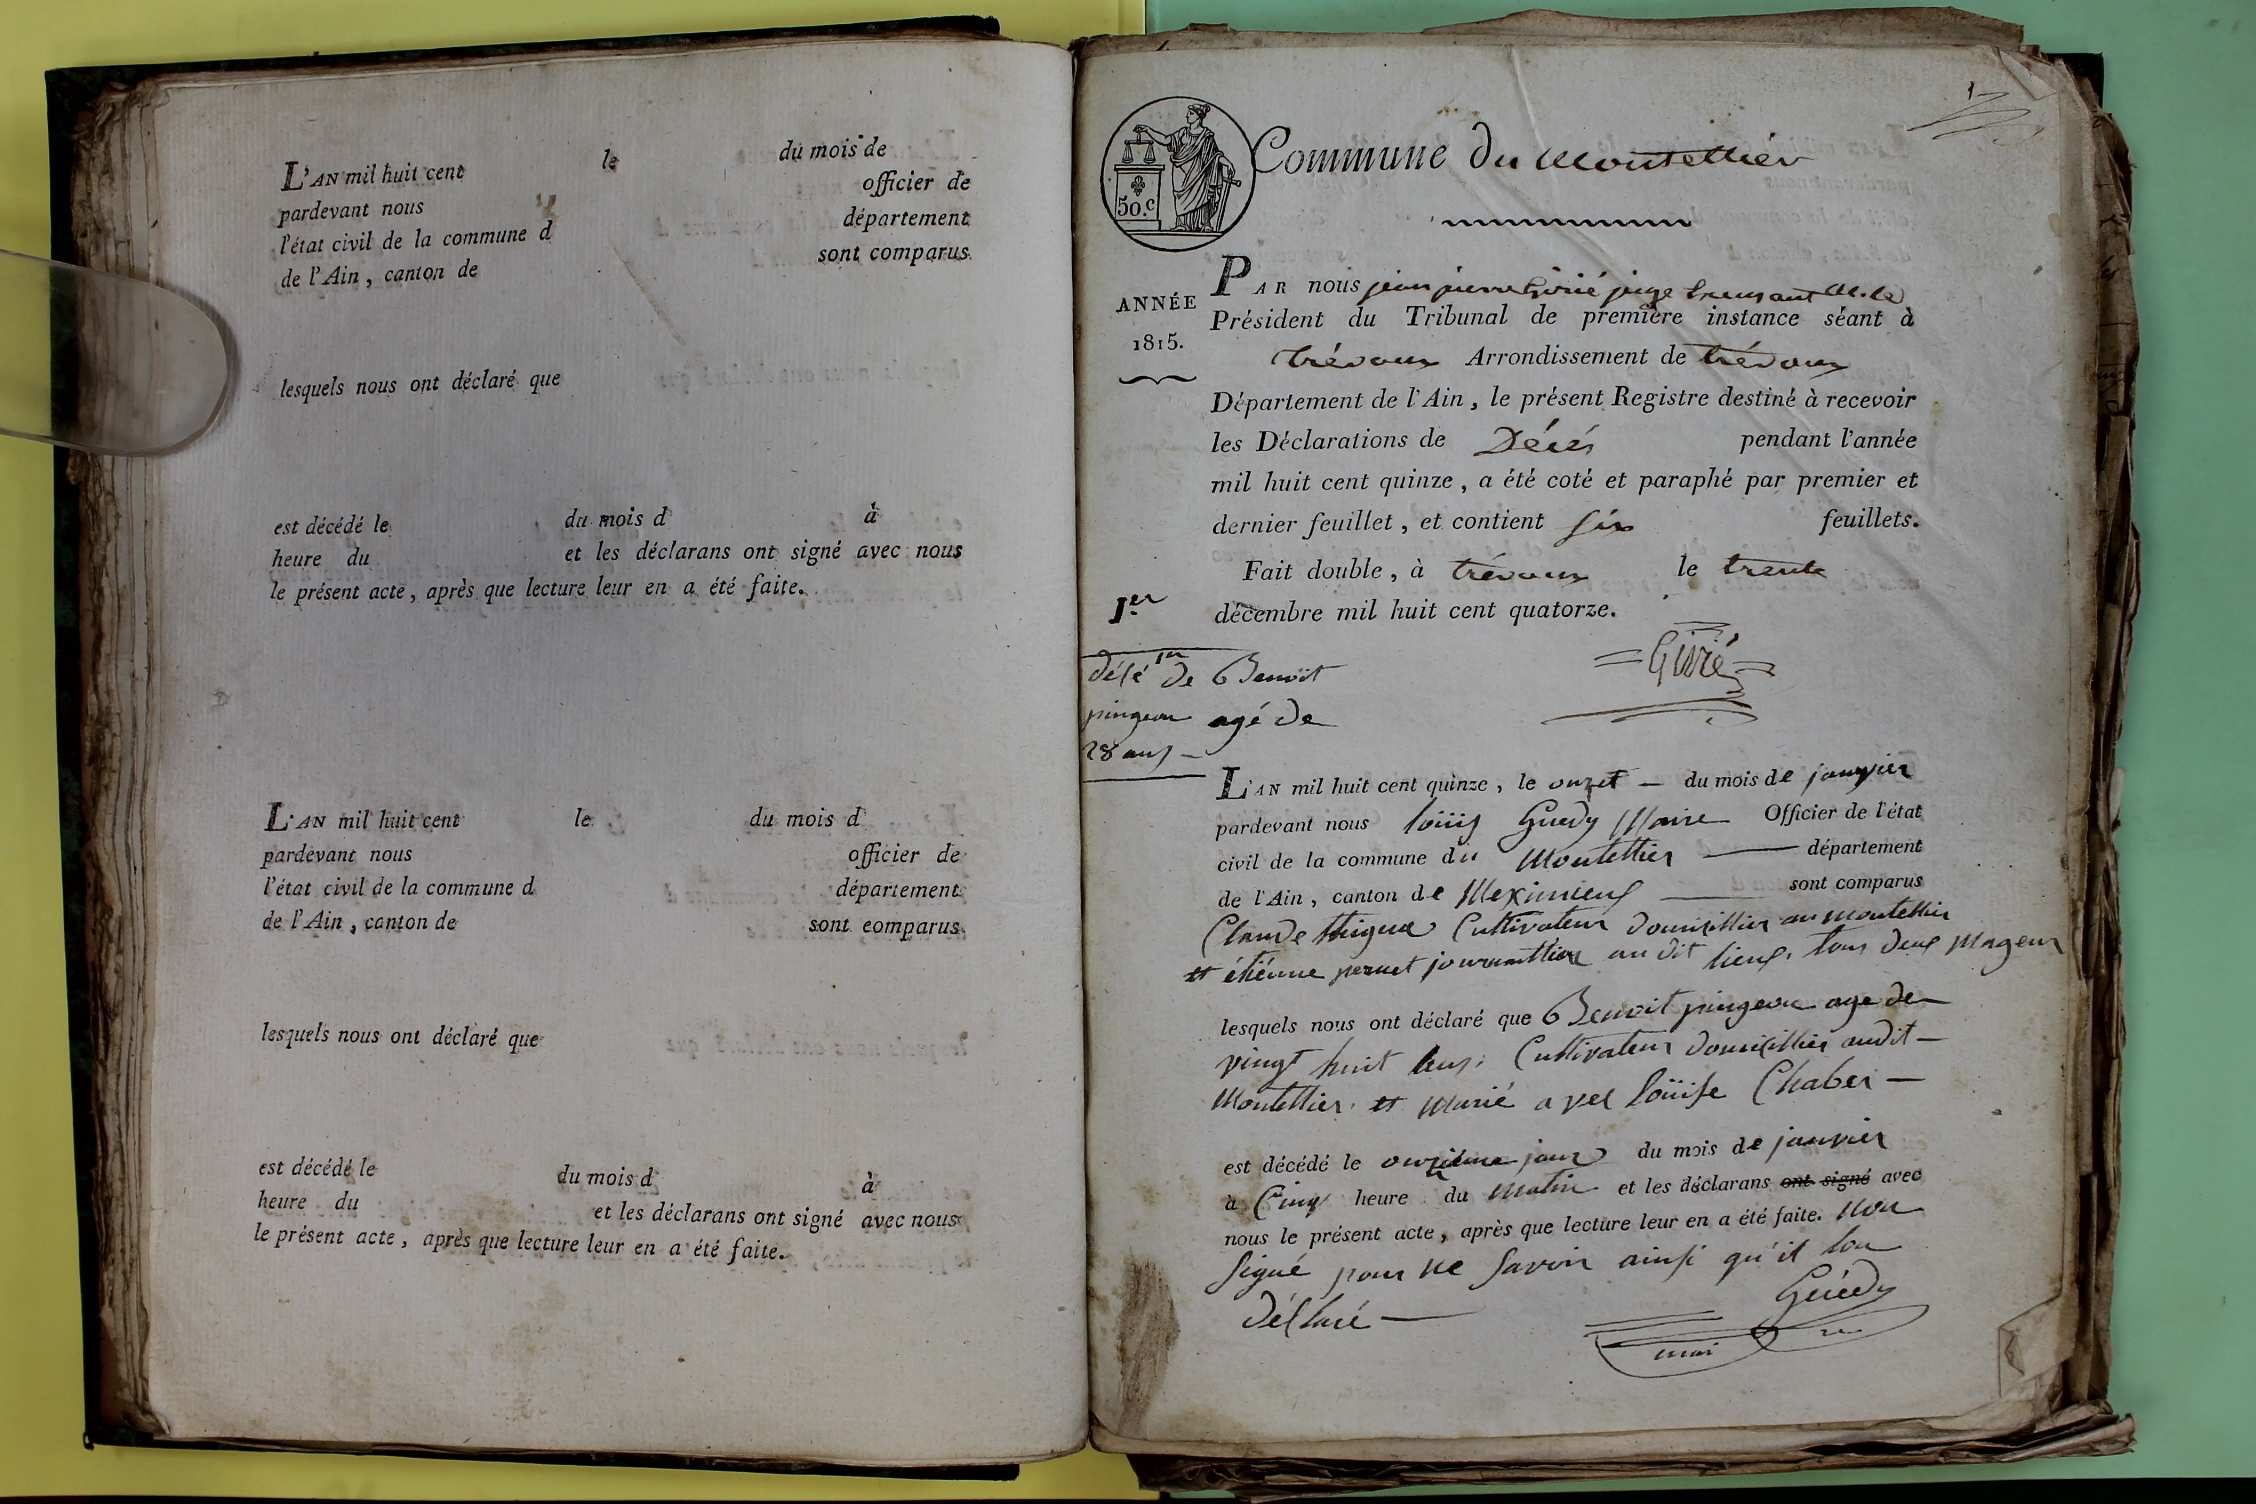 L'AN mil huit cent le du mois de
pardevant nous officier de
l'état civil de la commune d département
de l'Ain, canton de sont comparus
lesquels nous ont déclaré que
est décédé le du mois d à
heure du et les déclarans ont signé avec nous
le présent acte, après que lecture leur en a été faite.
L'AN mil huit cent le du mois d
pardevant nous officier de
l'état civil de la commune d département
de l'Ain, canton de sont comparus
lesquels nous ont déclaré que
est décédé le du mois d à
heure du et les déclarans ont signé avec nous
le présent acte, après que lecture leur en a été faite.
1
50.c
Commune du Montellier
ANNÉE
1815.
PAR nous jean pierre Givré juge M. le
Président du Tribunal de première instance séant à
trévoux Arrondissement de trévoux
Département de l'Ain, le présent Registre destiné à recevoir
les Déclarations de Décés pendant l'année
mil huit cent quinze, a été coté et paraphé par premier et
dernier feuillet, et contient six feuillets.
Fait double, à trévoux le trente
décembre mil huit cent quatorze.
Givré
1er
1er
désé de Benoit
pingeon agé de
28 ans
L'AN mil huit cent quinze, le onzet du mois de janvier
pardevant nous loüis Guedy Maire Officier de l'état
civil de la commune du Montellier département
de l'Ain, canton de Meximieux sont comparus
Claude Cultivateur domisillier au montellier
et étiénne pernet journallier au dit lieux, tous deux mageur
lesquels nous ont déclaré que Benoit pingeon age de
vingt huit ans, Cultivateur domisillier audit
Montellier, et marié avec Loüise Chaber
est décédé le onziéme jour du mois de janvier
à Cinq heure du matin et les déclarans ont signé avec
nous le présent acte, après que lecture leur en a été faite. non
signé pour ne savoir ainsi qu'il lon
déslaré
Guédy
mai re